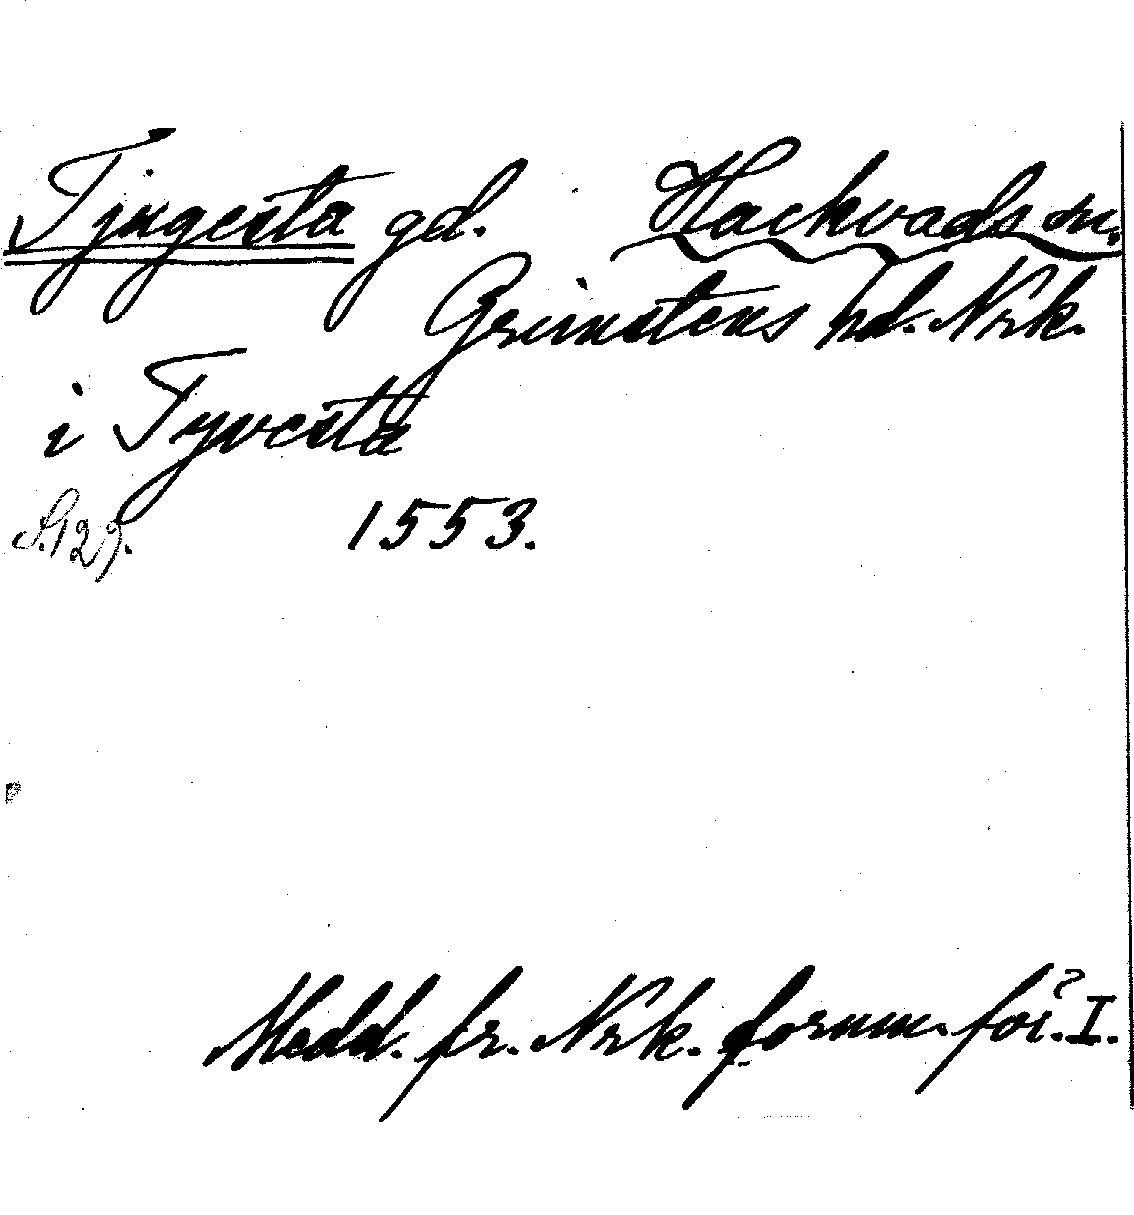 Tjugesta gd. Hackvads sn.
Grimstens hd. Nrk.
i Tyvesta
S. 129. 1553.
Medd. fr. Nrk. fornm. för. I.